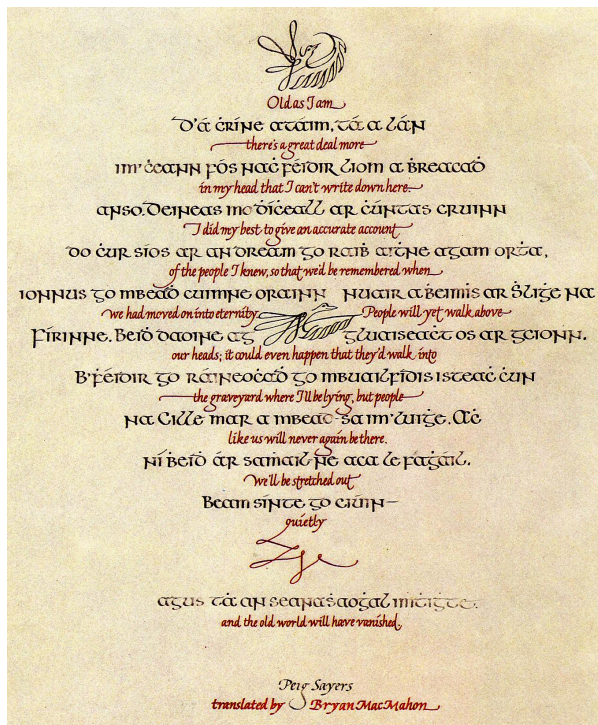 Old as I am
D'á ċríne atáim, tá a lán
there's a great deal more
im' ċeann fós naċ féidir liom a ḃreacaḋ
in my head that I can't write down here.
anso. Deineas mo ḋíċeall ar ċúntas cruinn
I did my best to give an accurate account
do ċur síos ar an dream go raiḃ aiṫne agam orṫa,
of the people I knew, so that we'd be remembered when
ionnus go mbeaḋ cuiṁne orainn nuair a ḃeimís ar Ṡliġe na
we had moved on into eternity. People will yet walk above
Fírinne. Beiḋ daoine ag gluaiseaċt os ar gcionn.
our heads; it could even happen that they'd walk into
B'ḟéidir go ráineoċaḋ go mbuailfidís isteaċ ċun
the graveyard where I'll be lying, but people
na Cille mar a mbeaḋ-sa im' luiġe. Aċ
like us will never again be there.
ní ḃeiḋ ár saṁail-ne aca le faġáil.
We'll be stretched out
Beam sínte go ciúin—
quietly
agus tá an seanaṡaoġal imiġṫe.
and the old world will have vanished.
Peig Sayers
translated by Bryan MacMahon